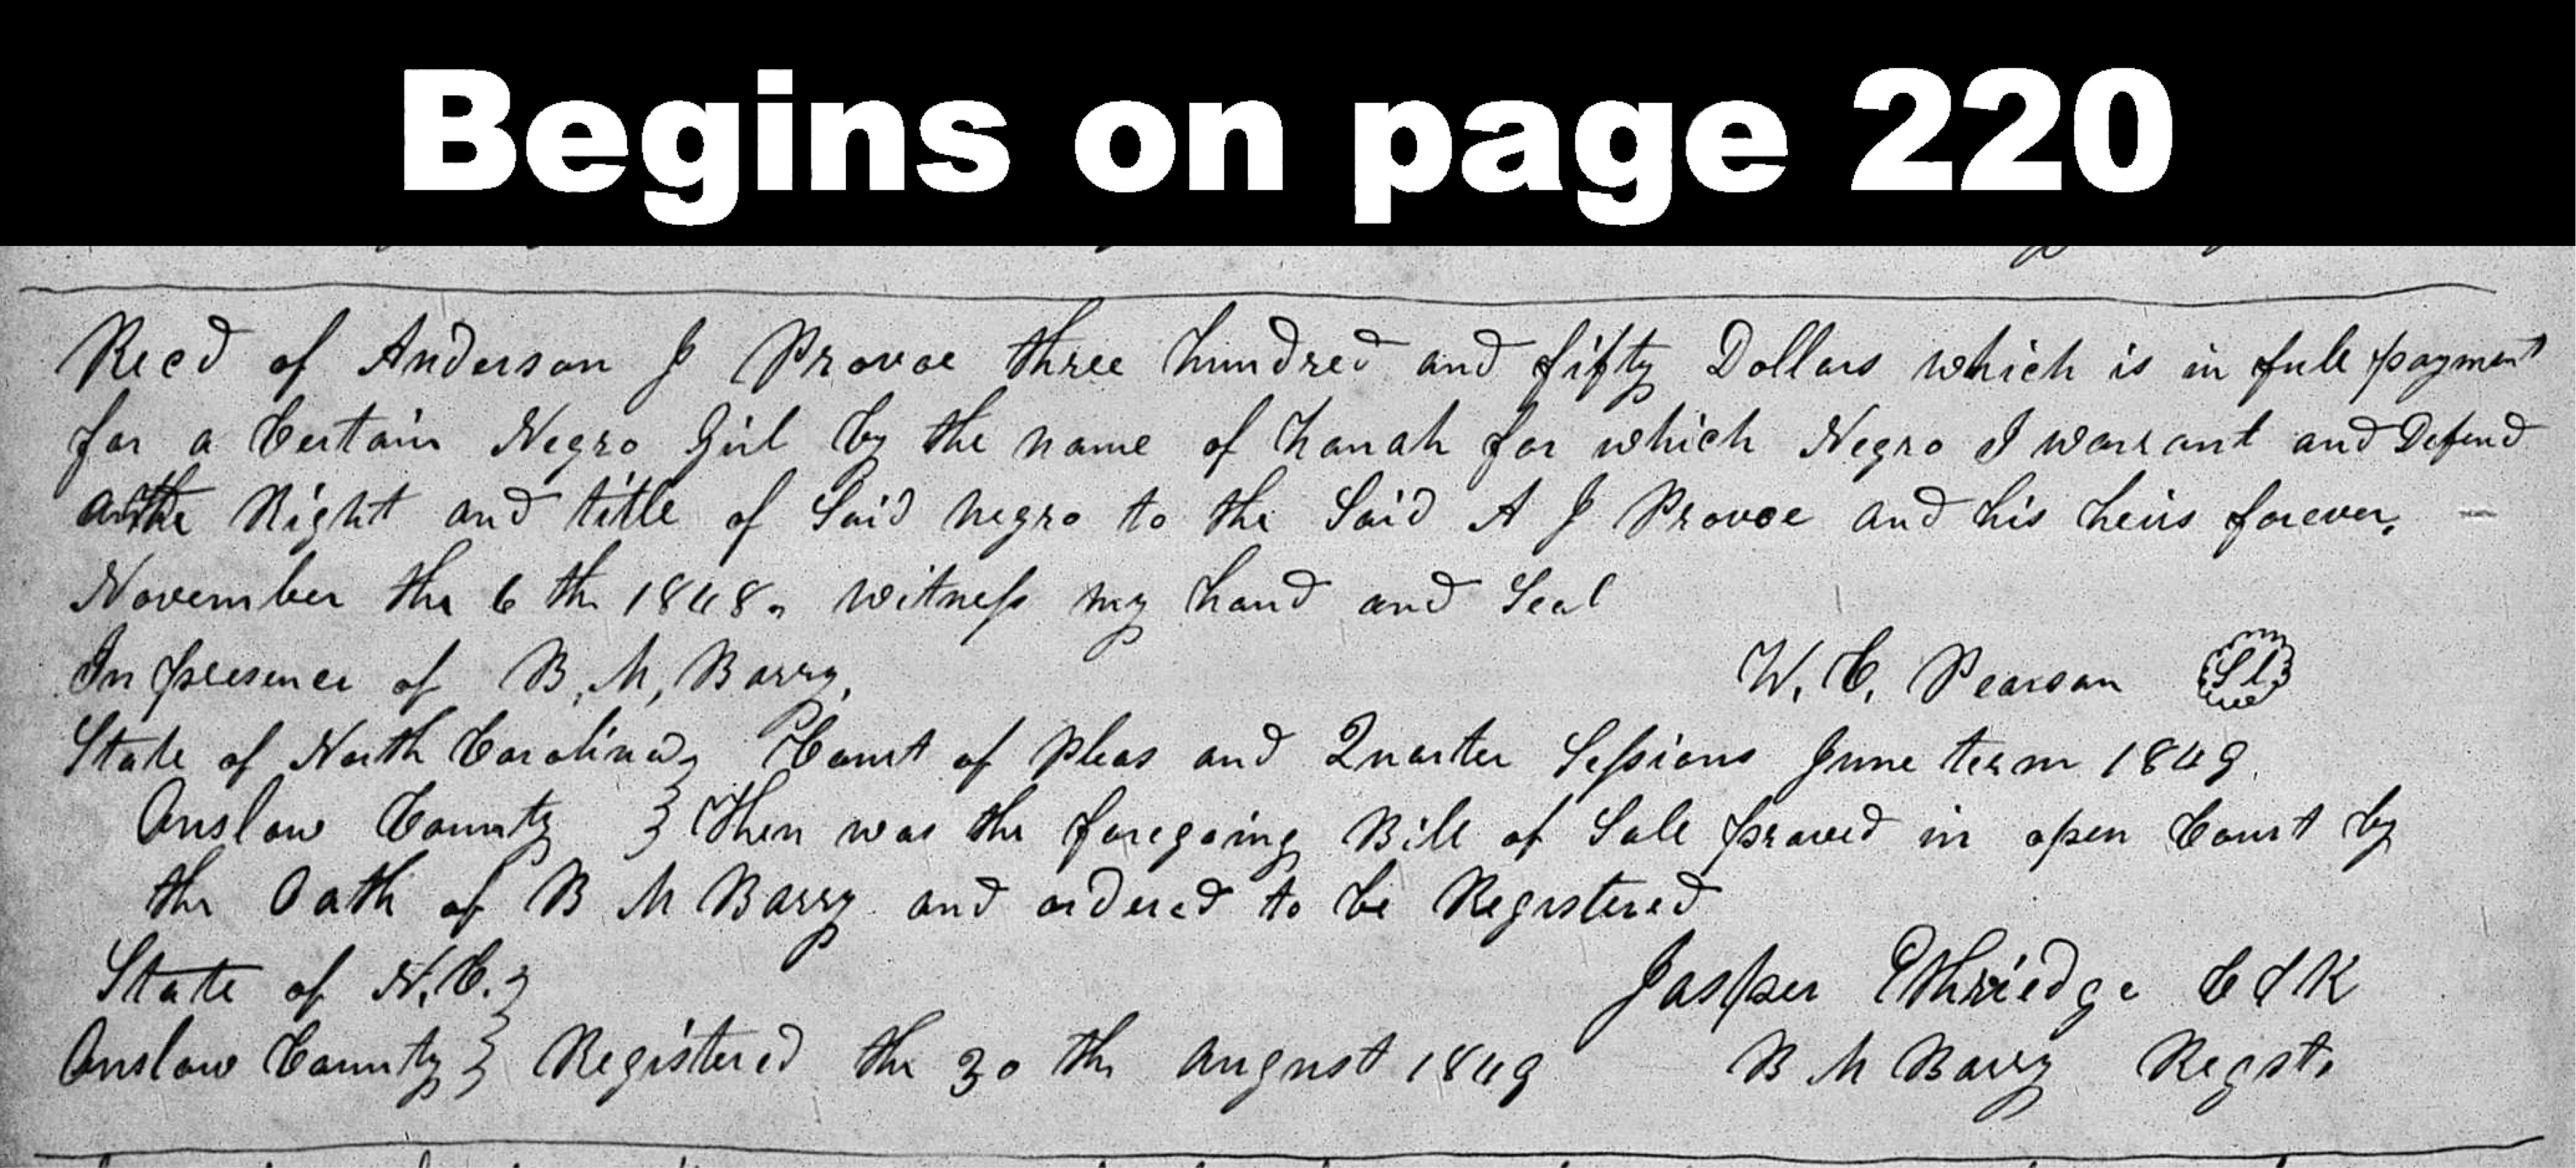 Begins on page 220
Recd of Anderson J Provoe three hundred and fifty Dollars which is in full payment
for a Certain Negro Girl by the name of hanah for which Negro I warrant and Defend
the Right and title of Said negro to the Said A J Provoe and his heirs forever,
November the 6 th 1848. witness my hand and Seal
In presence of B. M, Barry, W. C. Pearson Sl
State of North Carolina } Court of Pleas and Quarter Sessions June term 1849.
Onslow County } Then was the foregoing Bill of Sale proved in open Court by
the Oath of B M Barry and ordered to be Registered
State of N. C. } Jasper Ethriedge Clk
Onslow County } Registered the 30 th August 1849 B M Barry Regst.